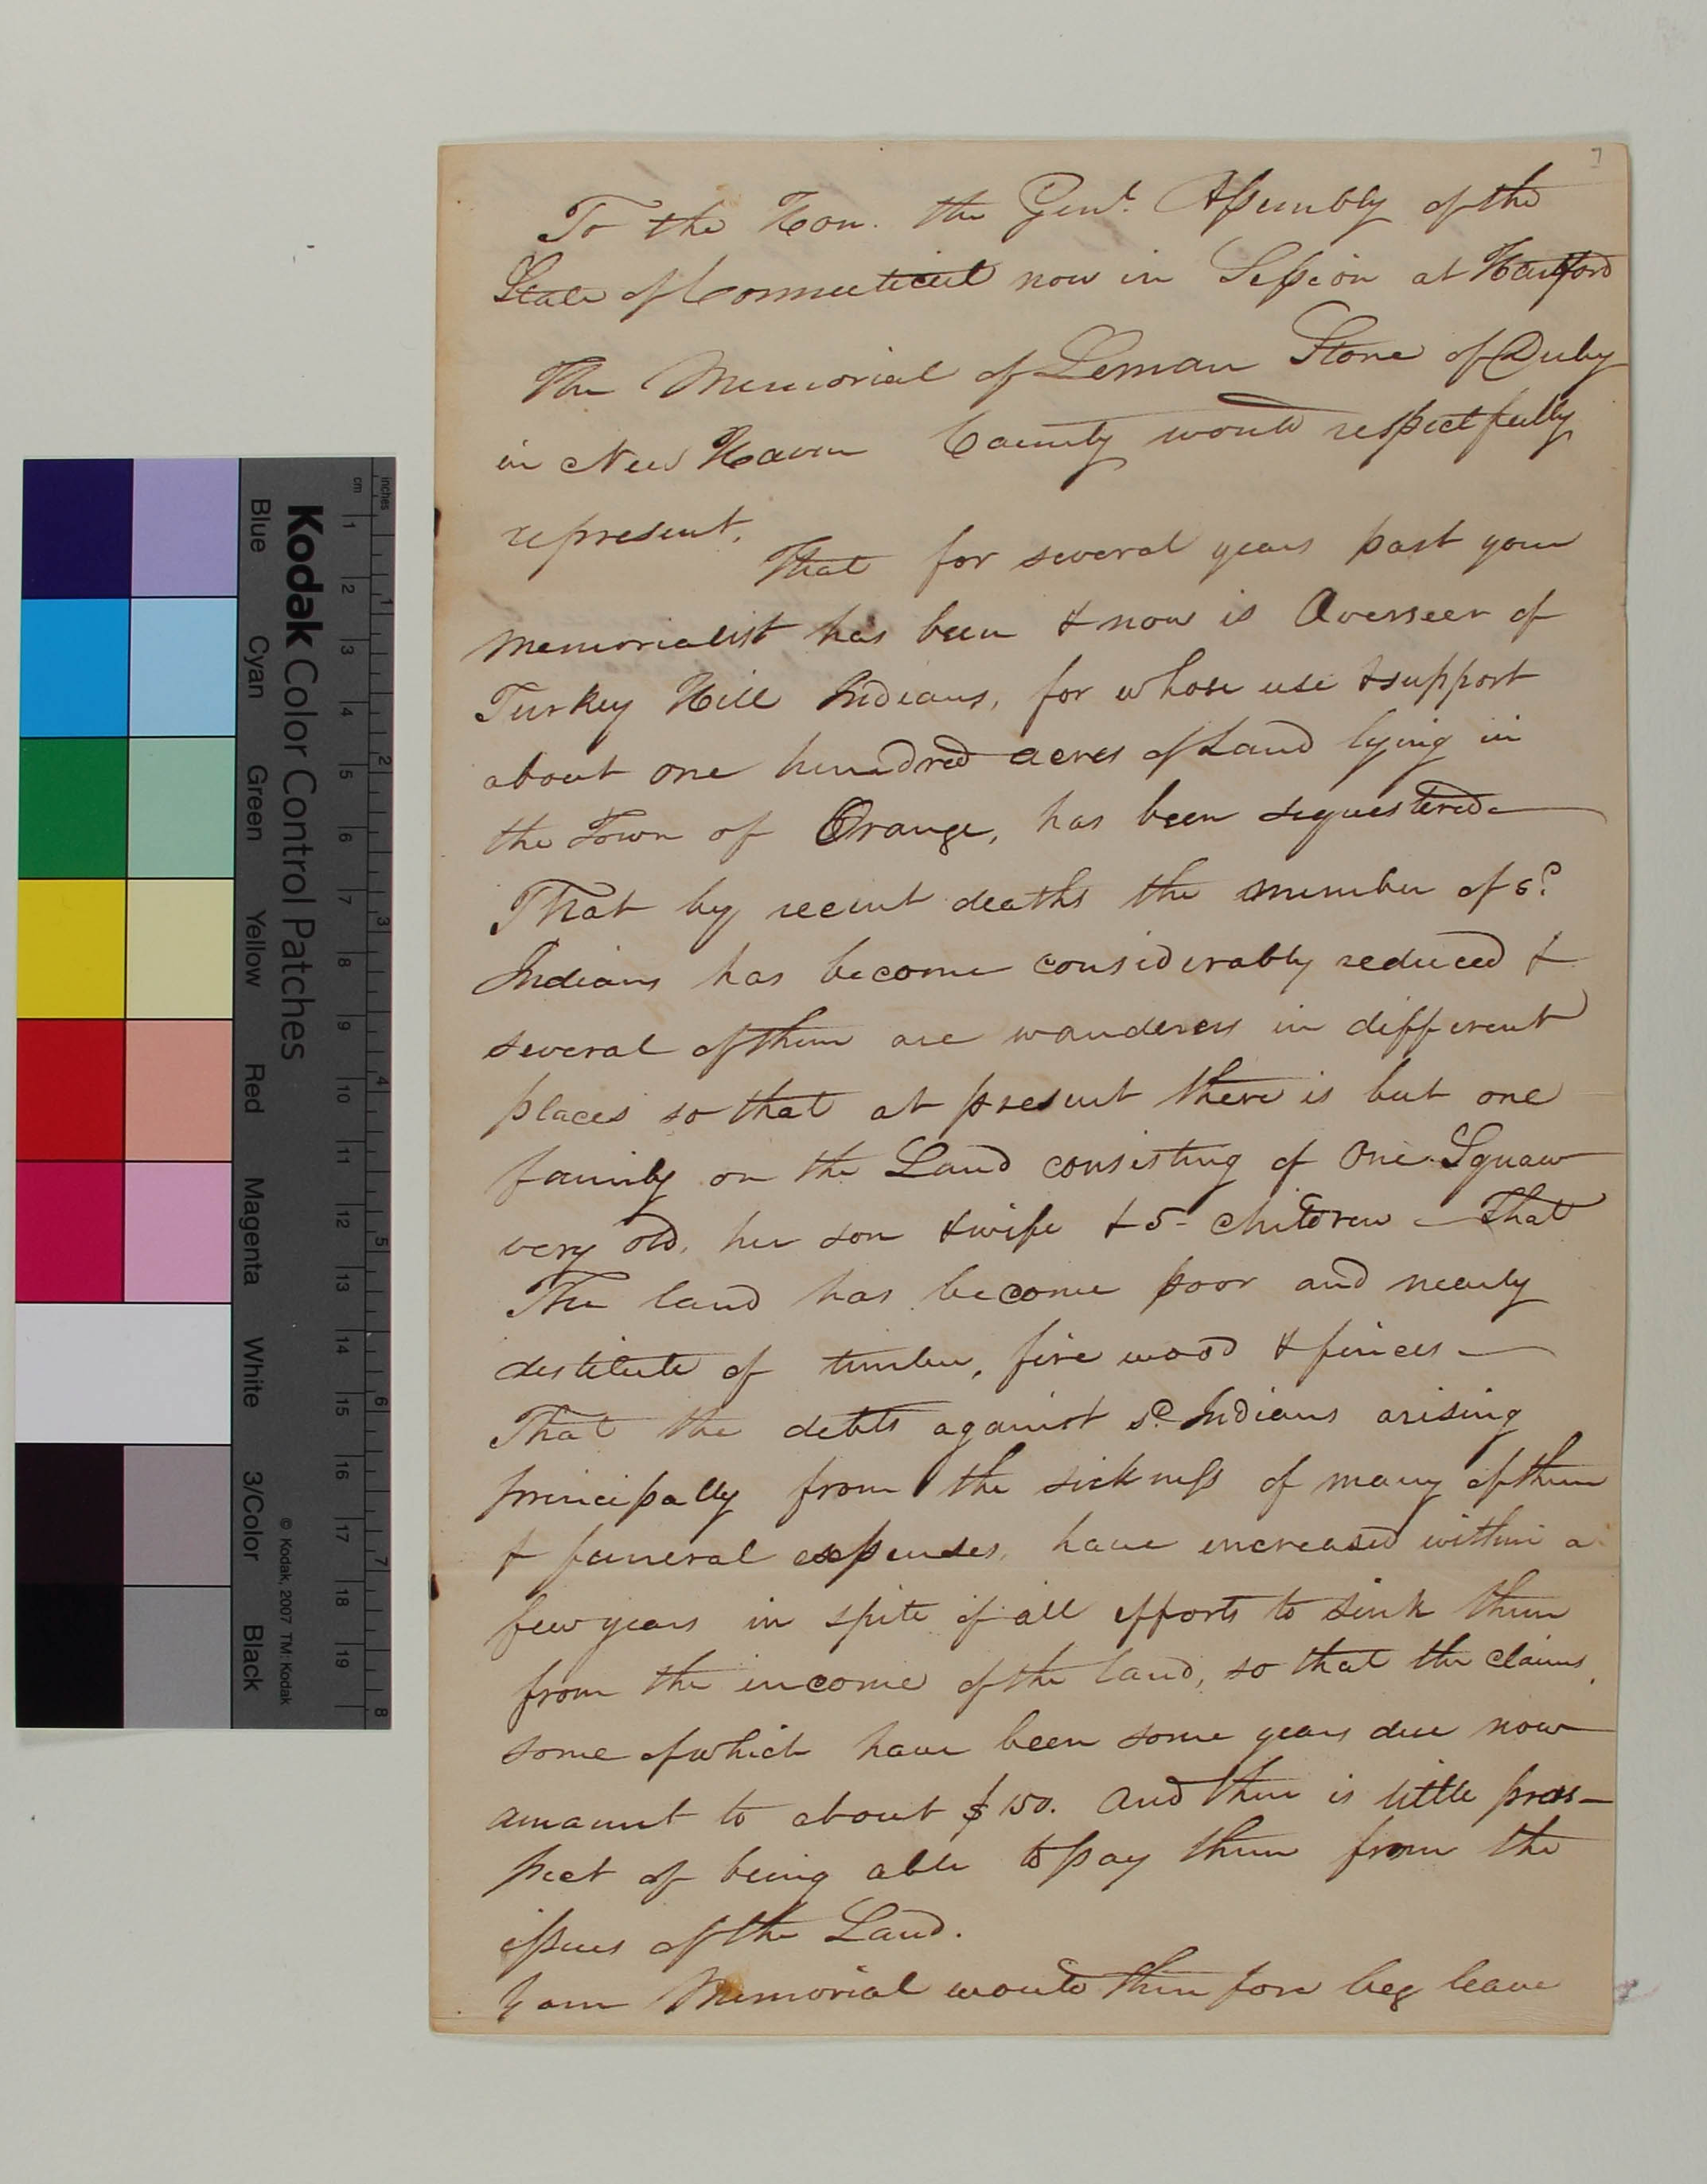 7
To the Hon. the Genl. Assembly of the
State of Connecticut now in Session at Hartford
The Memorial of Leman Stone of Derby
in New Haven County would respectfully
represent.
That for several years past your
memorialist has been & now is Overseer of
Turkey Hill Indians, for whose use & support
about one hundred acres of Land lying in
the Town of Orange, has been sequestered—
That by recent deaths the number of sd
Indians has become considerably reduced &
several of them are wanderers in different
places so that at present there is but one
family on the Land consisting of One Squaw
very old, her son & wife & 5- children — That
The land has become poor and nearly
destitute of timber, fire wood & fences —
That the debts against sd Indians arising
principally from the sickness of many of them
& funeral expenses, have increased within a
few years in spite of all efforts to sink them
from the income of the land, so that the claims,
some of which have been some years due now
amount to about $150. And there is little pros-
pect of being able to pay them from the
issues of the Land.
Your Memorial would therefore beg leave
Kodak Color Control Patches
Blue Cyan Green Yellow Red Magenta White 3/Color Black
© Kodak, 2007 TM: Kodak
inches 1 2 3 4 5 6 7 8
cm 1 2 3 4 5 6 7 8 9 10 11 12 13 14 15 16 17 18 19